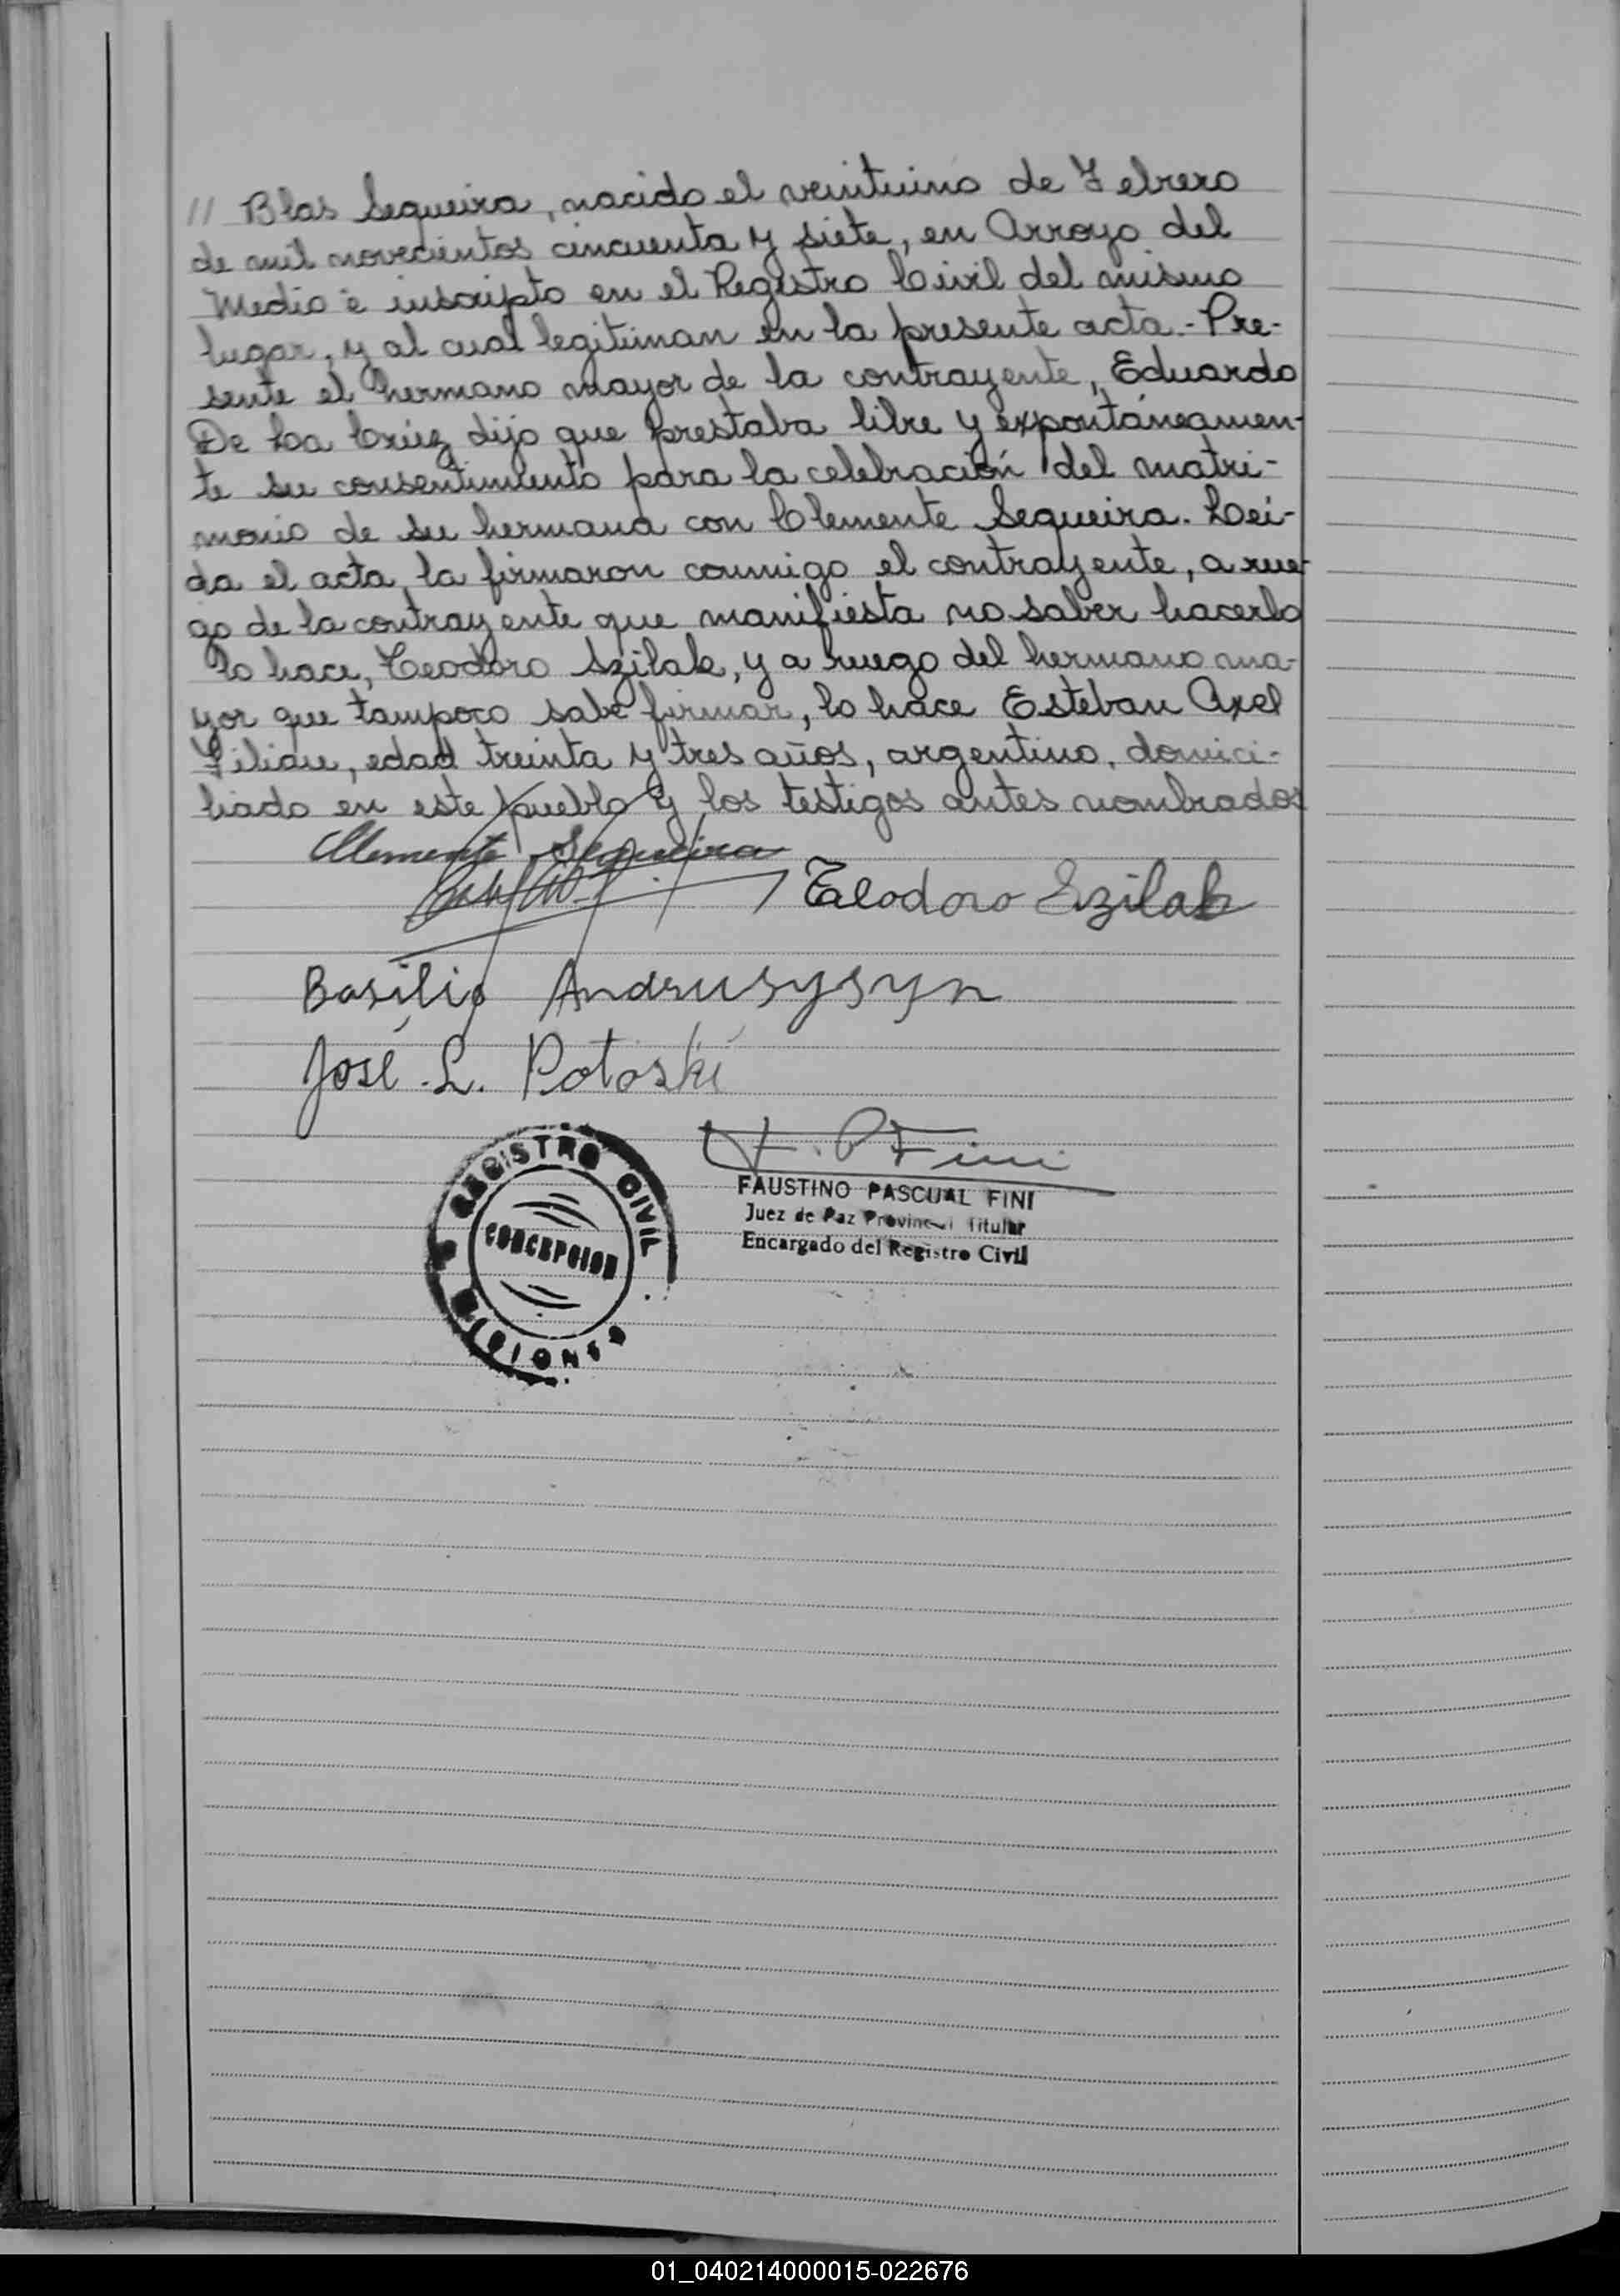 // Blas Sequeira, nacido el veintiuno de Febrero
de mil novecientos cincuenta y siete, en Arroyo del
Medio é inscripto en el Registro Civil del mismo
lugar, y al cual legitiman en la presente acta.- Pre-
sente el hermano mayor de la contrayente, Eduardo
De La Crúz dijo que prestaba libre y expontáneamen-
te su consentimiento para la celebración del matri-
monio de su hermana con Clemente Sequeira. Lei-
da el acta, la firmaron conmigo el contrayente, a rue-
go de la contrayente que manifiesta no saber hacerlo
lo hace, Teodoro Szilak, y a ruego del hermano ma-
yor que tampoco sabe firmar, lo hace Esteban Axel
edad treinta y tres años, argentino, domici-
liado en este pueblo y los testigos antes nombrados
Clemente Sequeira
Teodoro Szilak
Basilio Andrusysyn
José L. Potoski
F. P. Fini
FAUSTINO PASCUAL FINI
Juez de Paz Provincial Titular
Encargado del Registro Civil
REGISTRO CIVIL
CONCEPCION
MISIONES
01_040214000015-022676